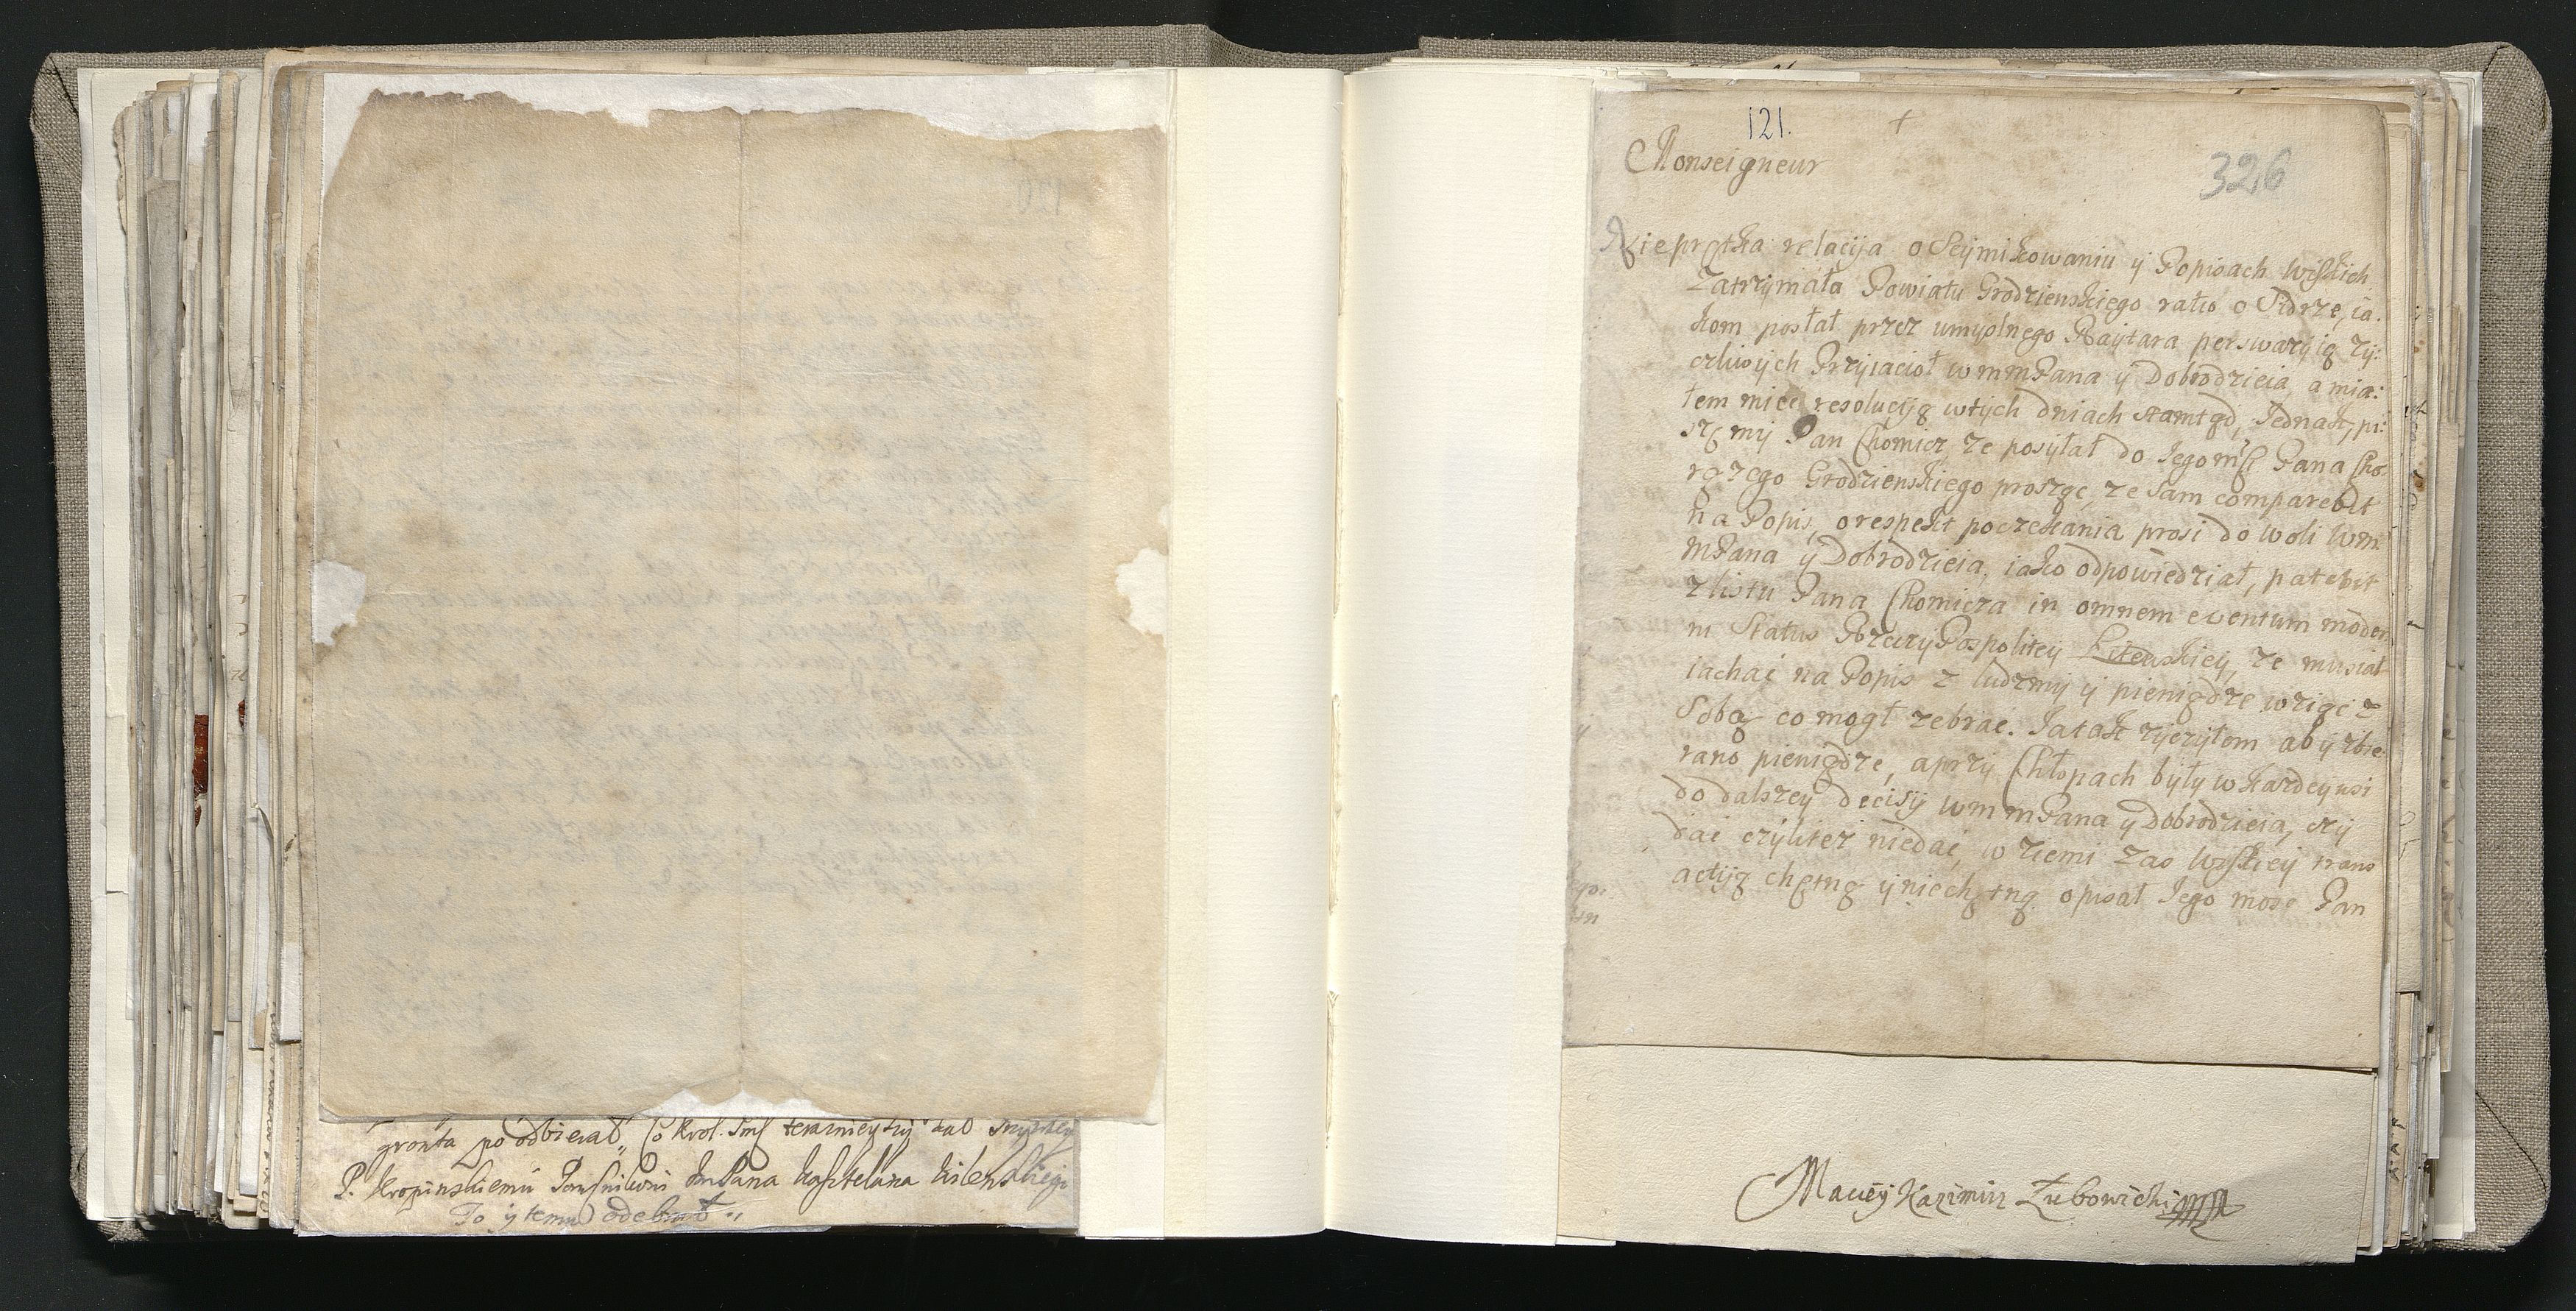 gronta po odbierał,, Co Krol. Jmś
P. Kropinskiemu ImPana Kasztelana Wilenskiego
To y temu odebrał .,
121.
+
Monseigneur
326
Nieprętka relacija o Seijmikowaniu ij Popisach Wiskich
Zatrzijmała Powiatu Grodzienskiego ratio o Sidrze, ia:
kom posłał przez umijslnego Raijtara perswazijią zij:
czliwijch Przijiacioł wmmPana ij Dobrodzieia, a mia:
łem miec resolucijg wtijch dniach stamtąd, Jednak, pi:
szę mij Pan Chomicz, ze posijłał do Jegomśći Pana Cho
rążego Grodzienskiego prosząc, ze Sam comparebit
na Popis, o respekt poczekania prosi do woli Wm
mPana ij Dobrodzieia, iako odpowiedział, patebit
z listu Pana Chomicza in omnem eventum moder
ni Status RzeczijPospolitej Litewskiej, ze musiał
iachać na Popis z ludzmij ij pieniądze wziąć z
Sobą co mogł zebrać. Ja tak zijczijłem abij zbie:
rano pieniądze, a przij Chłopach bijłij w Kardeynsi
do dalszeij decisij wmmPana ij Dobrodzieia, czij
dać czijlitez niedać, w ziemi zas Wiskiej trans
actijg chętną ij niechętną opisał Jego mość Pan
Macieij Kazimirz Zubowicki